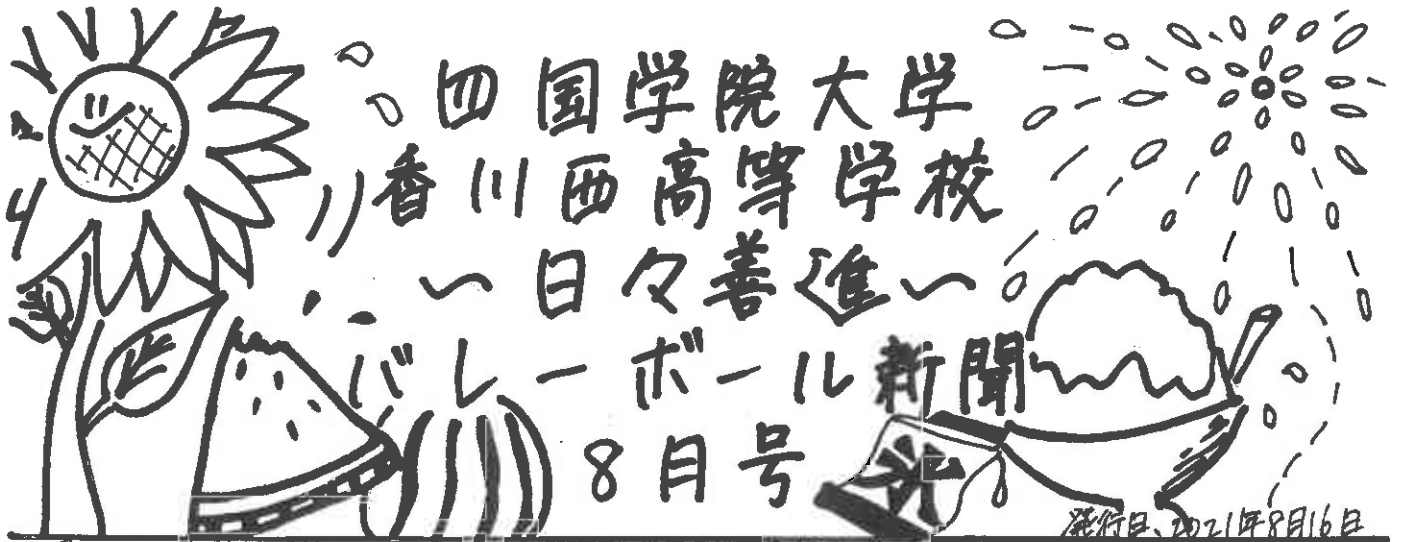 四国学院大学
香川西高等学校
〜日々善進〜
バレーボール新聞
8月号
氷
発行日、2021年8月16日